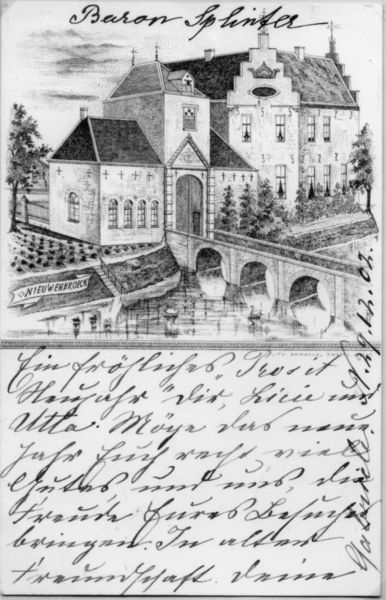 Baron Splinter
NIEUWENBROECK
Ein fröhliches Prosit
Neujahr Dir, Licie und
Utta. Möge das neue
Jahr Euch recht viel
Gutes und uns, die
Freude Eures Besuches
bringen. In alter
Freundschaft. Deine
29.12.02.